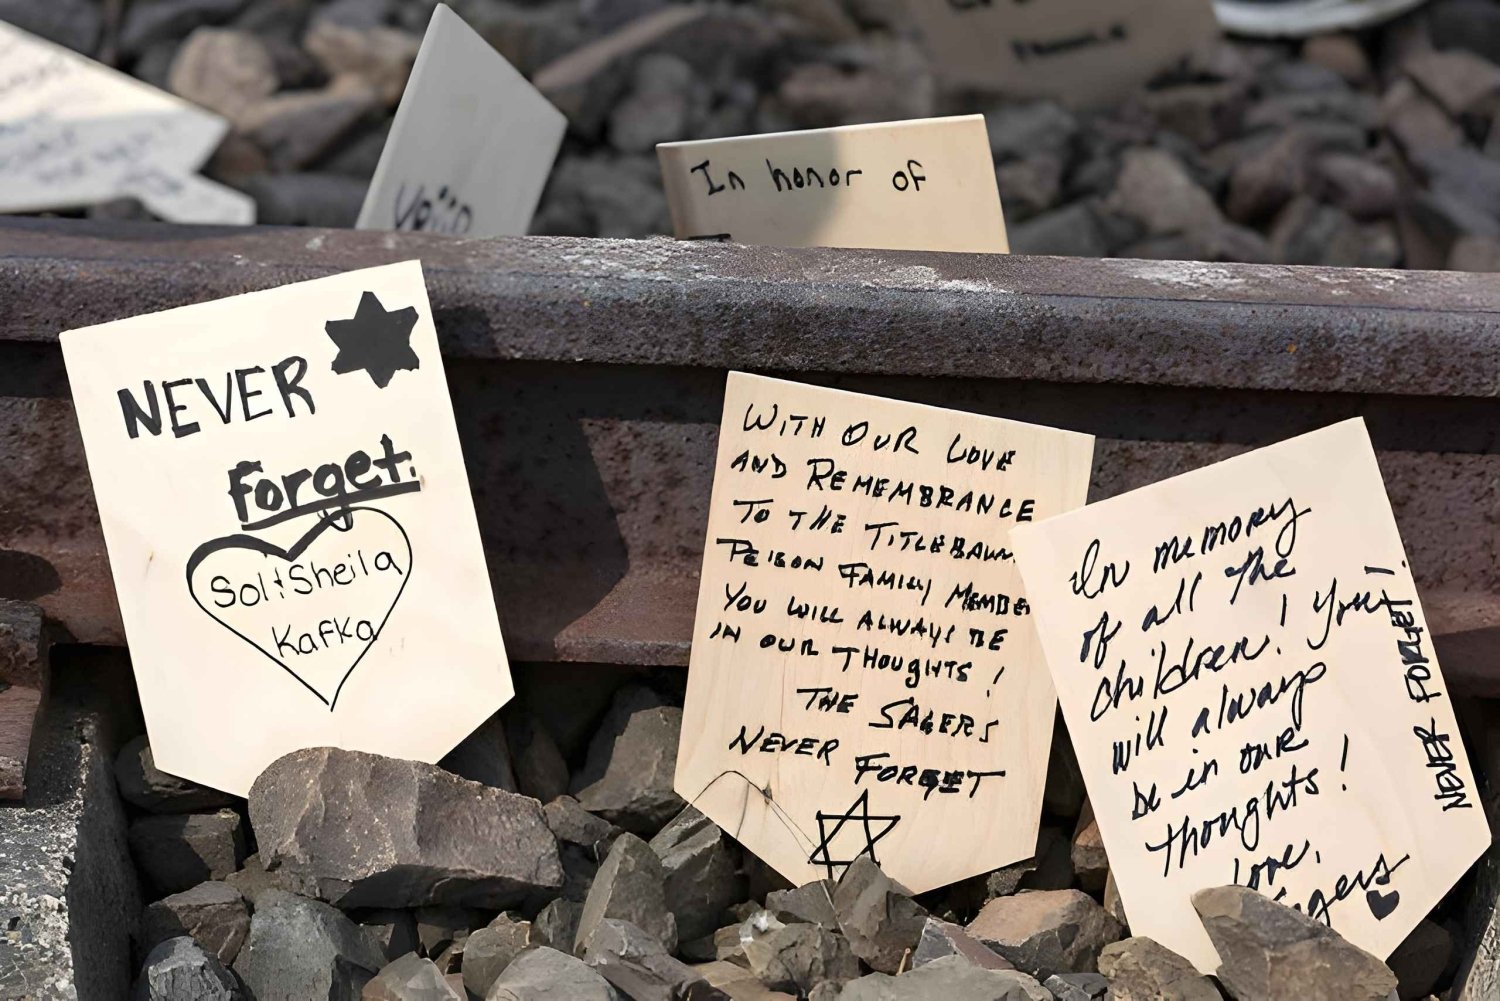 In honor of
NEVER
Forget.
Sol & Sheila
Kafka
WITH OUR LOVE
AND REMEMBRANCE
TO THE
FAMILY
YOU WILL ALWAYS BE
IN OUR THOUGHTS!
THE SAGERS
NEVER FORGET
In memory
of all the
children! You
will always
be in our
thoughts!
love,
NEVER FORGET!